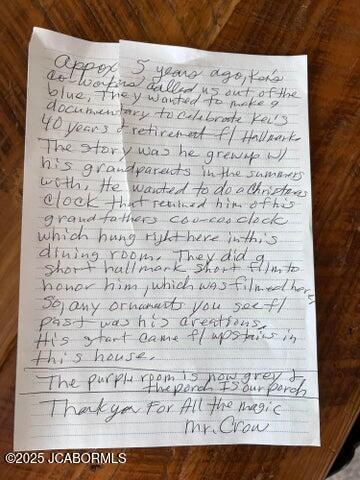 Appox 5 years ago, Ken's
co-workers called us out of the
blue. They wanted to make a
documentary to celebrate Kev's
40 years & retirement f/ Hallmark
The story was he grew up w/
his grandparents in the summers
with. He wanted to do a Christmas
clock that remined him of his
grandfathers coo-coo clock
which hung right here in this
dining room. They did a
short hallmark short film to
honor him, which was filmed here,
So, any ornaments you see f/
past was his creations.
His start came f/ upstairs in
this house.
The purple room is now grey &
the porch is our porch
Thank you For All the magic
Mr. Crow
©2025 JCABORMLS